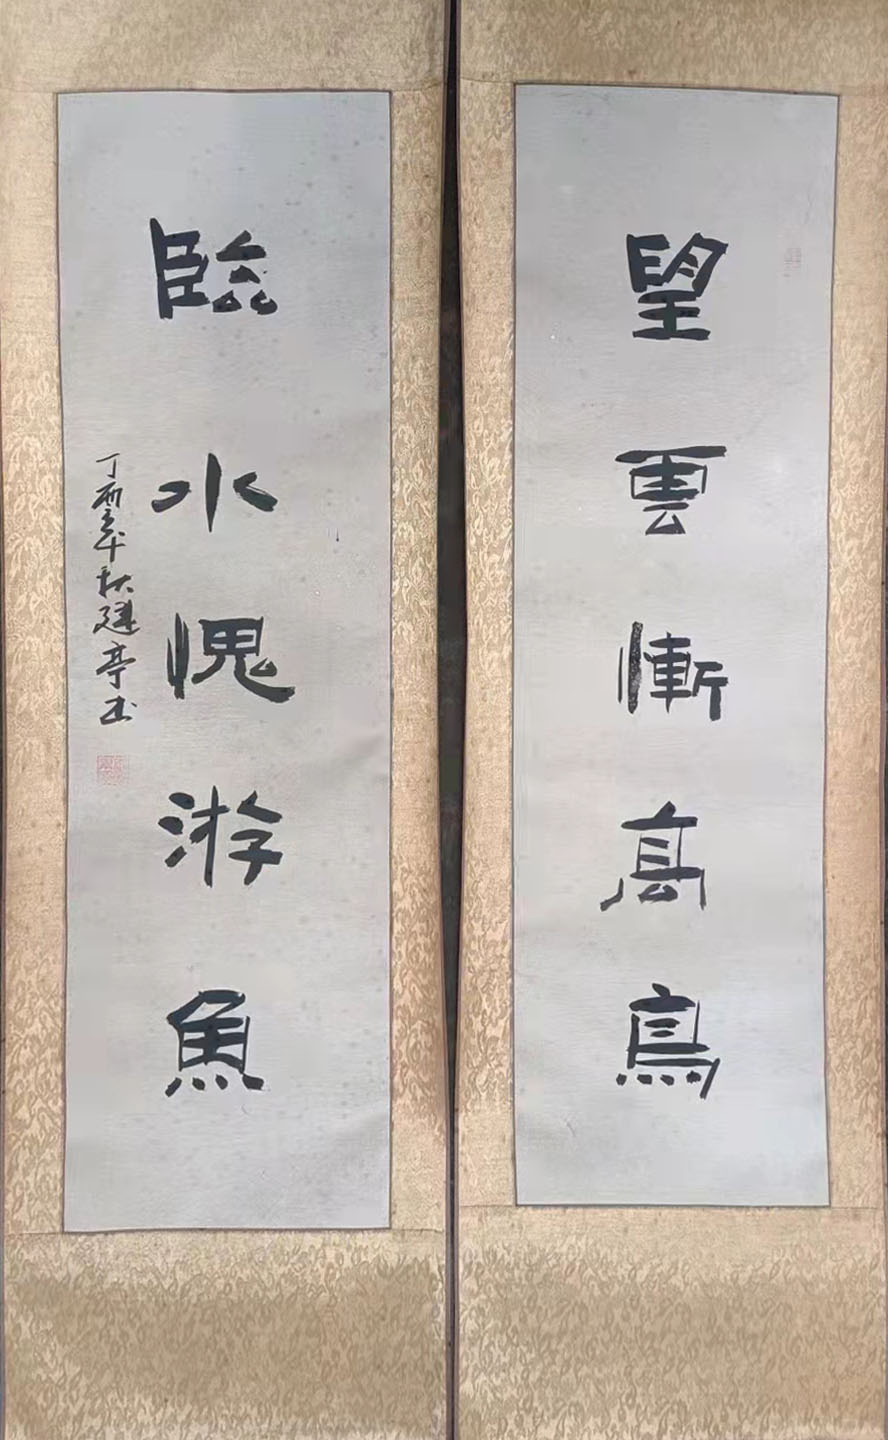 望雲慚高鳥
臨水愧游魚
丁酉年秋建亭书